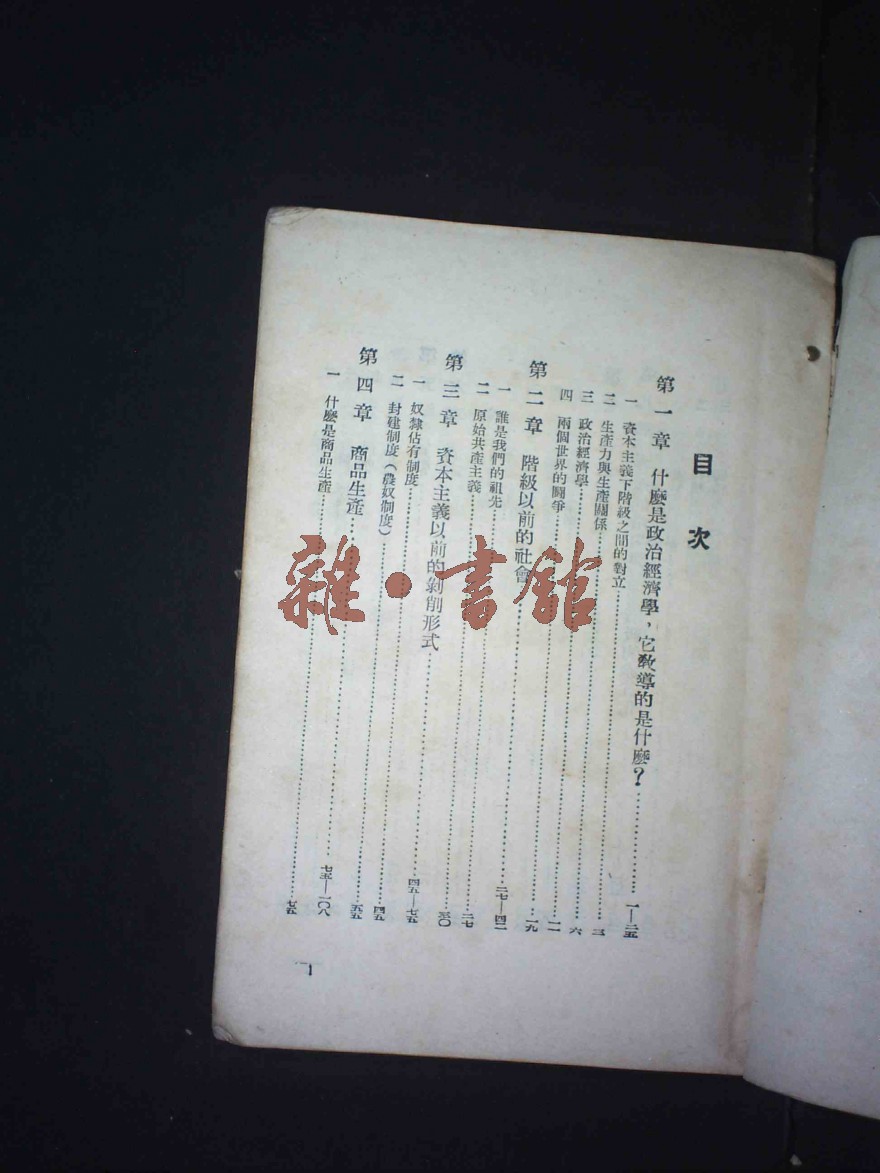 目次
第一章 什麼是政治經濟學，它教導的是什麼？……一—二五
一 資本主義下階級之間的對立……三
二 生產力與生產關係……六
三 政治經濟學……一一
四 兩個世界的鬪爭……一九
第二章 階級以前的社會……二七—四二
一 誰是我們的祖先……二七
二 原始共產主義……三〇
第三章 資本主義以前的剝削形式……四五—七五
一 奴隸佔有制度……四五
二 封建制度（農奴制度）……五五
第四章 商品生產……七五—一〇八
一 什麼是商品生產……七五
1
雜·書館